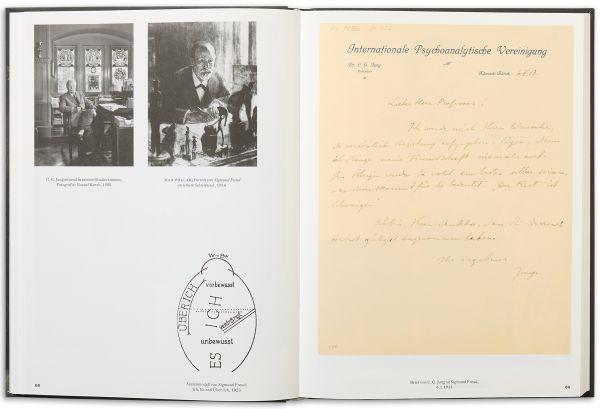 C. G. Jung sitzend in seinem Studierzimmer,
Fotografie: Yousuf Karsh, 1958
MAX POLLAK, Porträt von Sigmund Freud
an seinem Schreibtisch, 1914
W-Bw
vorbewusst
ÜBERICH
ICH
verdrängt
unbewusst
ES
von Sigmund Freud:
Ich, Es und Über-Ich, 1923
68
Internationale Psychoanalytische Vereinigung
Dr. C. G. Jung
Präsident
Küsnacht-Zürich
Lieber Herr Professor!
Ich werde mich Ihrem Wunsche,
die persönliche Beziehung aufzugeben, fügen, denn
ich dränge meine Freundschaft niemals auf.
Im Übrigen werden Sie wohl am besten selber wissen,
was dieser Moment für Sie bedeutet. „Der Rest ist
Schweigen"
Ihr ergebener
Jung
Brief von C. G. Jung an Sigmund Freud,
6.1.1913
69